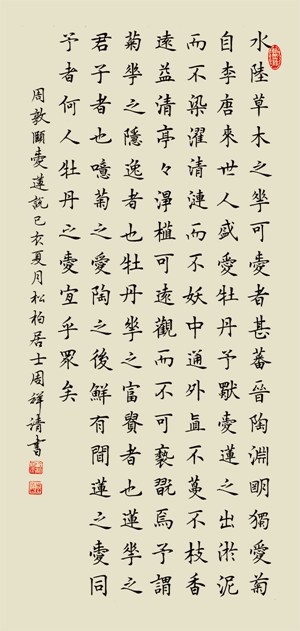 水陸草木之華可愛者甚蕃晉陶淵明獨愛菊
自李唐來世人盛愛牡丹予獨愛蓮之出淤泥
而不染濯清漣而不妖中通外直不蔓不枝香
遠益清亭々淨植可遠觀而不可褻翫焉予謂
菊華之隱逸者也牡丹華之富貴者也蓮華之
君子者也噫菊之愛陶之後鮮有聞蓮之愛同
予者何人牡丹之愛宜乎眾矣
周敦頤愛蓮說己亥夏月松柏居士周祥請書